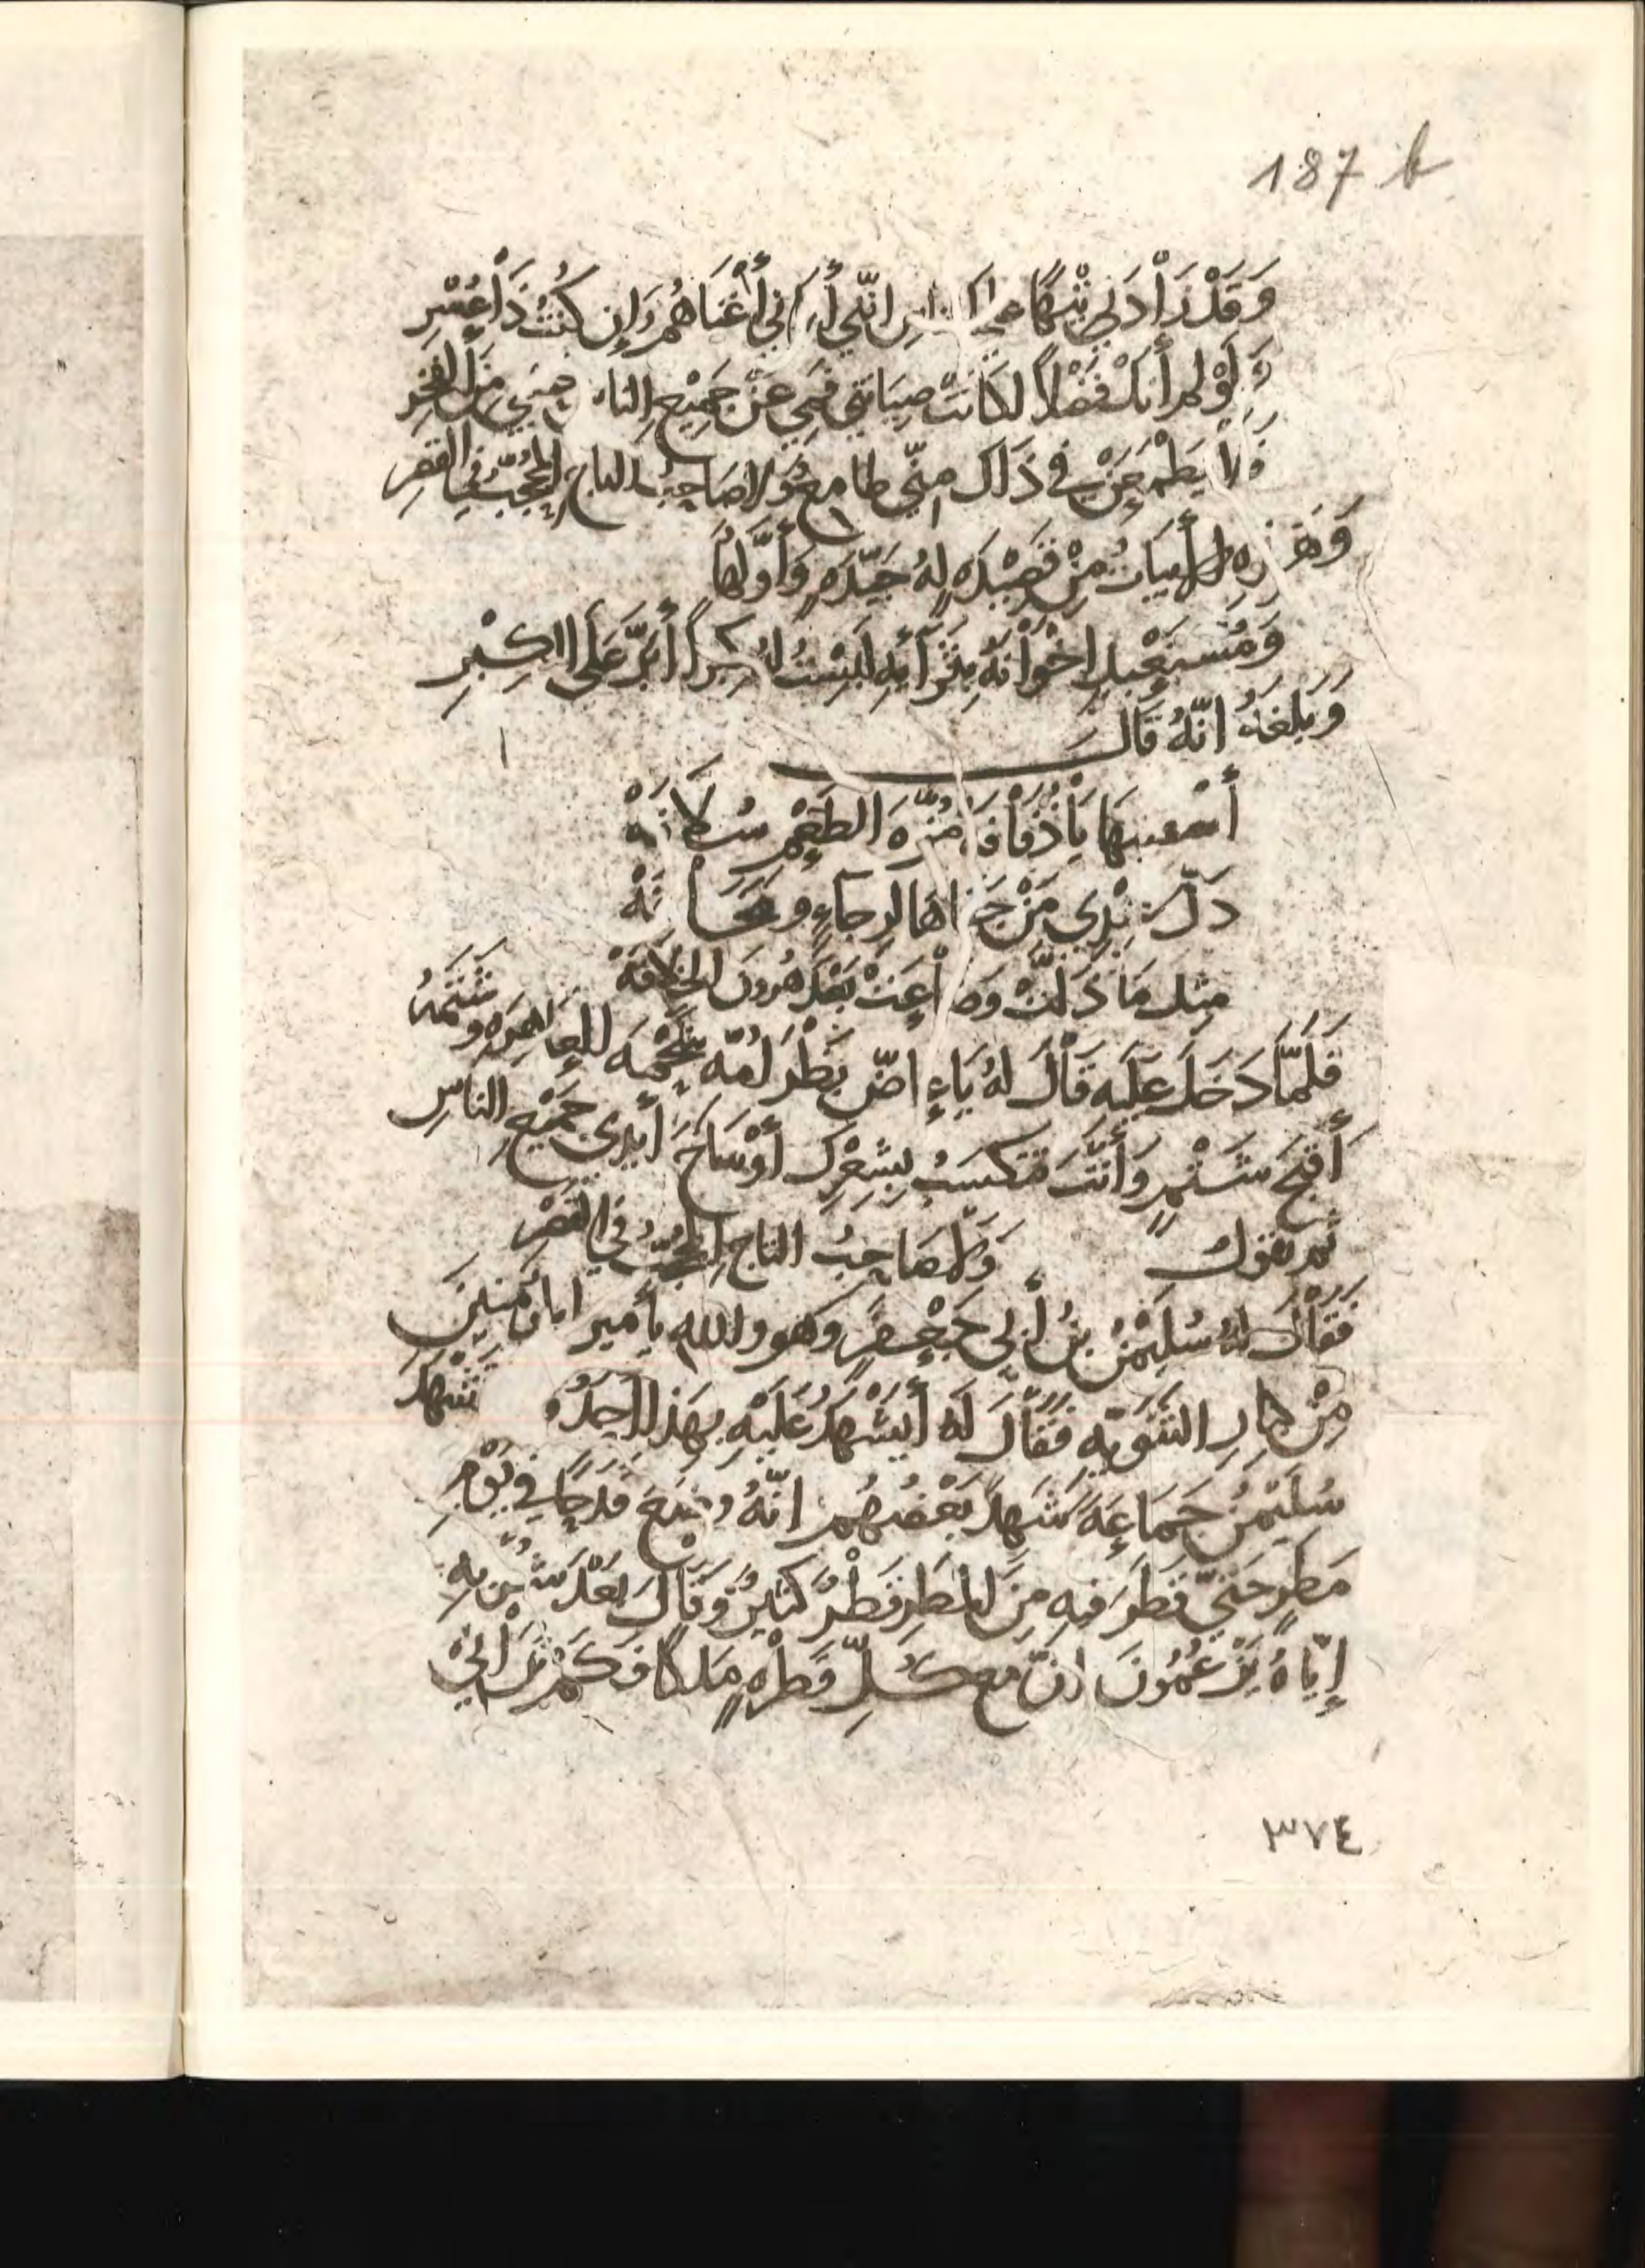 187 b
وَقَدْ زَاْدَنِي تِيْهًا عَلى الناسِ انّنِي أَرَانِي أَغْنَاهُمْ وَإِن كُنْتُ ذَاْ عُسْرِ
وَلَوْ لم أَنَلْ فَضْلاً لكَانَتْ صِيَانَتِي فَمِي عَنْ جَمِيْعِ النَاسِ حسبي مِنَ الفَخْرِ
وَلاْ يَطْمَعَنْ فِي ذَاكَ مِنّي طامعٌ وَلا صَاحِبُ التاجِ المُحَجَّبُ فِي القَصْرِ
وَهَذِهِ الأَبيَاتُ مِنْ قَصِيْدَهٍ لهُ جَيِّدَهٍ وَأَوَّلُهَا
وَمُسْتَعْبِدٍ إخْوَانَهُ بِثَرَآئِهِ لَبِسْتُ لهُ كِبراً أَبَرَّ عَلَى الكِبْرِ
وَبَلَغَهُ انّهُ قَالَ
أَسْقنيهَا يَاْ ذُفَاْفَهْ مُزّهَ الطَعْمِ سُلاَفَهْ
ذَلّ عِنْدِي مَنْ جَفَاهَا لِرجاءٍ و مَخَافَهْ
مِثل مَا ذَلتْ وَضَاْعَتْ بَعْدَ هرُونَ الخِلاَفَهْ
فَلَمَّا دَخَلَ عَلَيه قَاْلَ لهُ يَا عَاضّ بَظْرَ أُمّه للعَاهِرَهِ وشَتَمَهُ
أَقْبَحَ شَتْمٍ وَأَنْتَ تتكَسَبُ بِشِعْرِكَ أَوْسَاخَ أَيْدِى جَمِيْعِ الناسِ
ثم تقول وَلاْ صَاحِبُ التاجِ المُحَجَّبُ فِي القَصْرِ
فَقَاْلَ لهُ سُلَيْمنُ بنُ أَبِى جَعْفَرٍ وَهو والله يا أَمير المؤمِنينَ
مِنْ كِبارِ الثَنَوِيّهِ فَقَالَ لَهُ أَيَشْهَدُ عَلَيْهِ بِهَذَا أَحَدٌ و شَهِدَ
سُلَيْمنُ جَمَاعِهً شَهِدَ بَعْضُهُم انّهُ وضعَ قدحًا فِي يَوْمِ
مَطَرٍ حَتّي قَطَرَ فِيهِ مِنَ المَطَرِ قَطْرٌ كَثيرٌ وَقَاْلَ بَعْدَ شُرْبِهِ
إِيّاهُ يَزْعُمُونَ انّ مع كُلِّ قَطْرَهٍ مَلكًا فَكَمْ تَرَانِي
٣٧٤